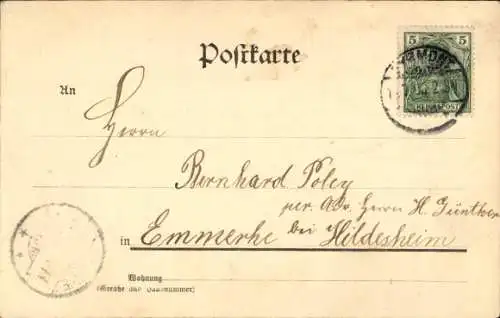 Postkarte
5 5
REICHSPOST
An
Herrn
Bernhard Poley
per. Adr. Herrn H. Günther
in Emmerke bei Hildesheim
Wohnung
(Straße und Hausnummer)